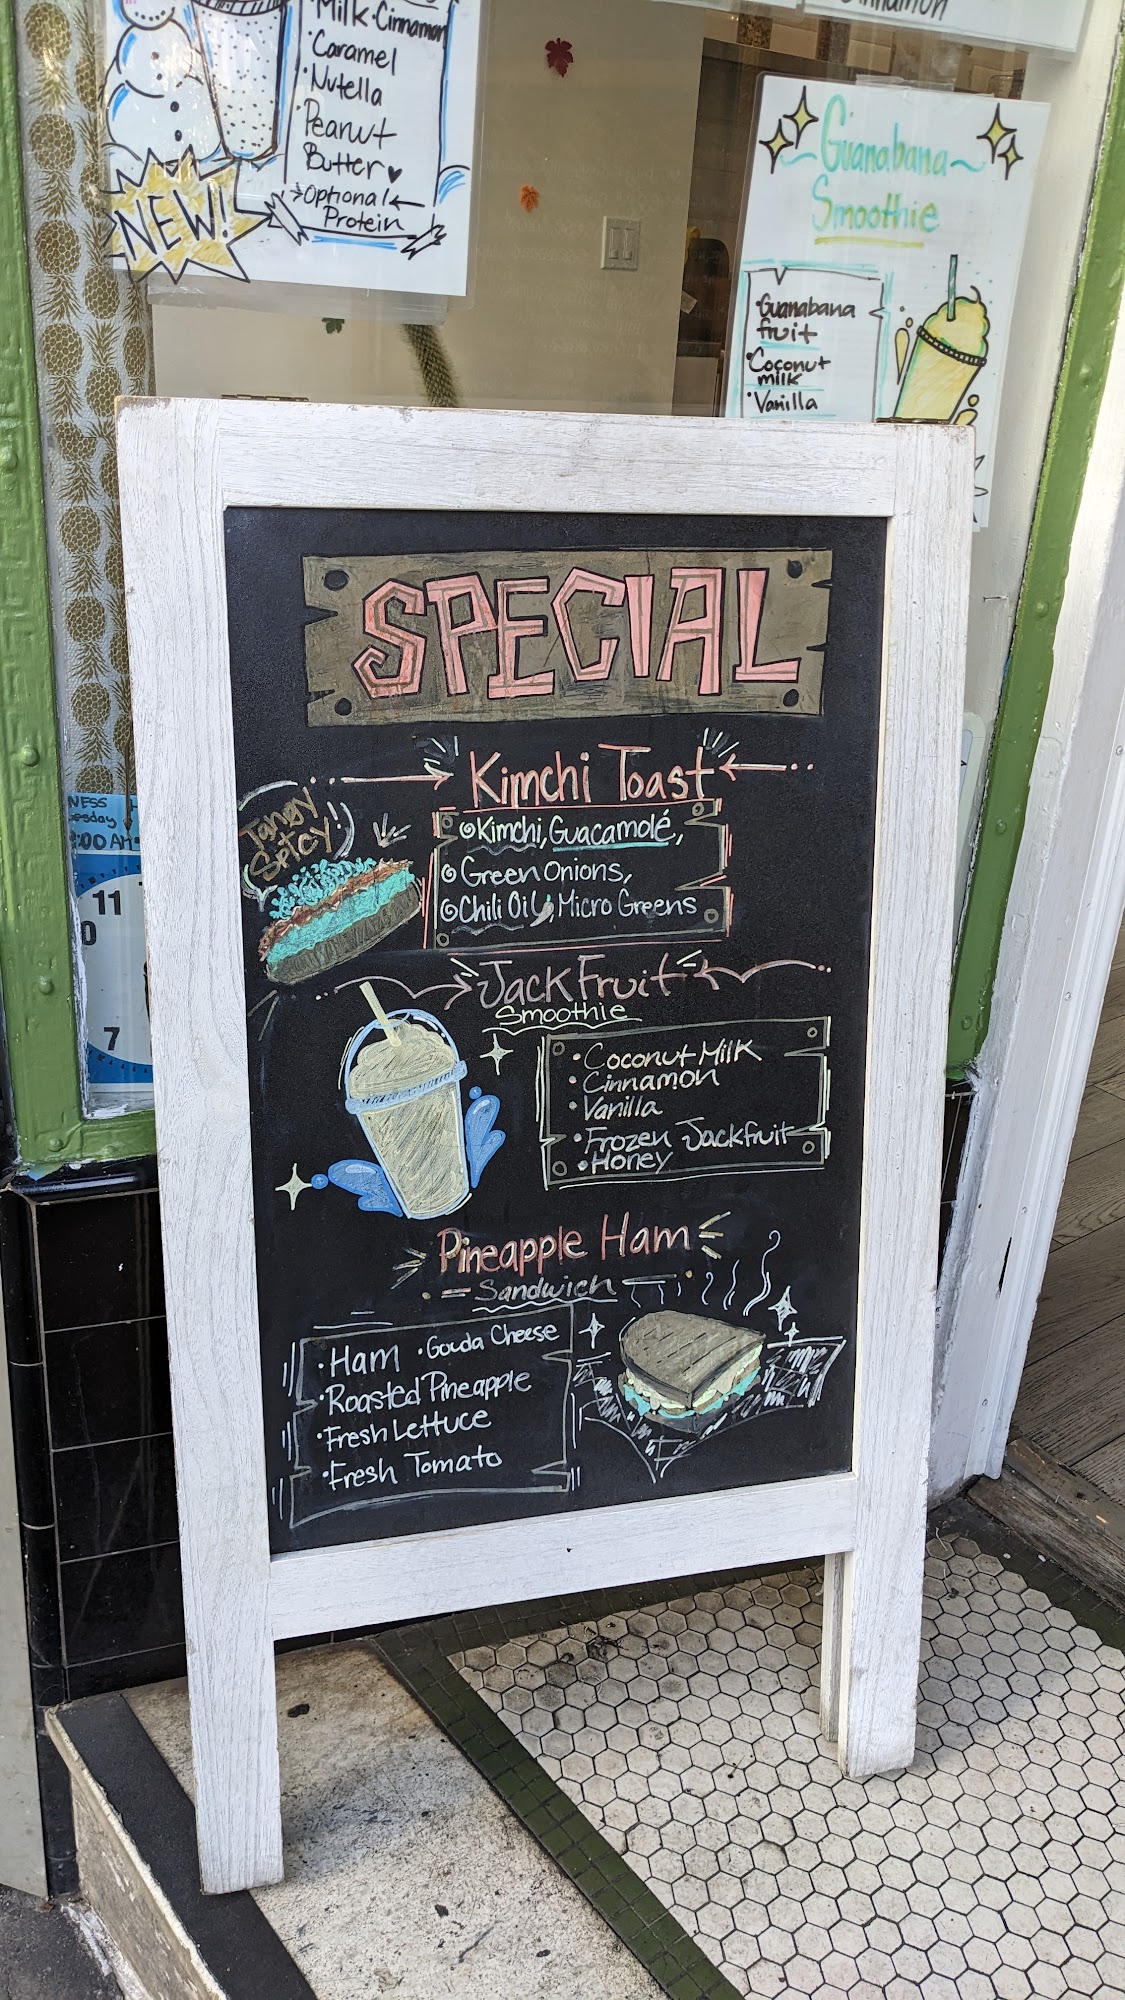 Milk·Cinnamon
·Caramel
·Nutella
·Peanut
Butter
Optional
Protein
NEW!
Guanabana
Smoothie
·Guanabana
fruit
·Coconut
milk
·Vanilla
SPECIAL
Kimchi Toast
Tangy
Spicy!
Kimchi, Guacamolé,
Green Onions,
Chili Oil, Micro Greens
JackFruit
Smoothie
·Coconut Milk
·Cinnamon
·Vanilla
·Frozen Jackfruit
·Honey
Pineapple Ham
Sandwich
·Ham ·Gouda Cheese
·Roasted Pineapple
·Fresh Lettuce
·Fresh Tomato
11
7